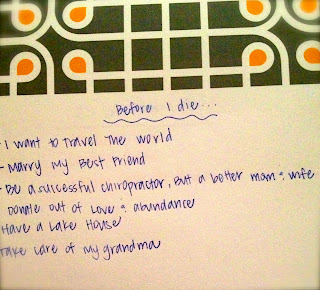 Before I die...
- I want to travel the world
- Marry my best friend
- Be a sucessful chiropractor, but a better mom & wife
Donate out of love & abundance
Have a Lake House
Take care of my grandma